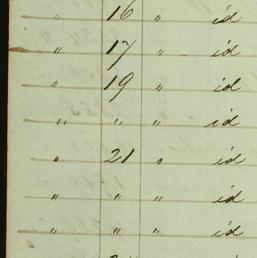 " 16 " id
" 17 " id
" 19 " id
" " " id
" 21 " id
" " " id
" " " id